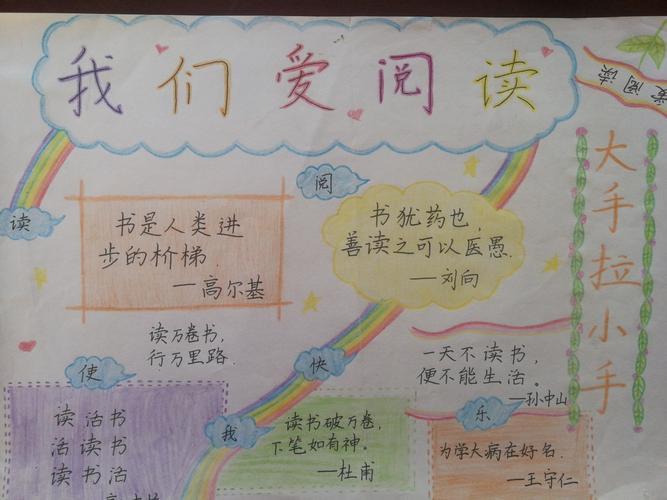 我们爱阅读
爱阅读
大手拉小手
读
阅
使
我
快
乐
书是人类进
步的阶梯
——高尔基
书犹药也,
善读之可以医愚。
——刘向
读万卷书,
行万里路.
一天不读书,
便不能生活。
——孙中山
读活书
活读书
读书活
读书破万卷,
下笔如有神。
——杜甫
为学大病在好名.
——王守仁